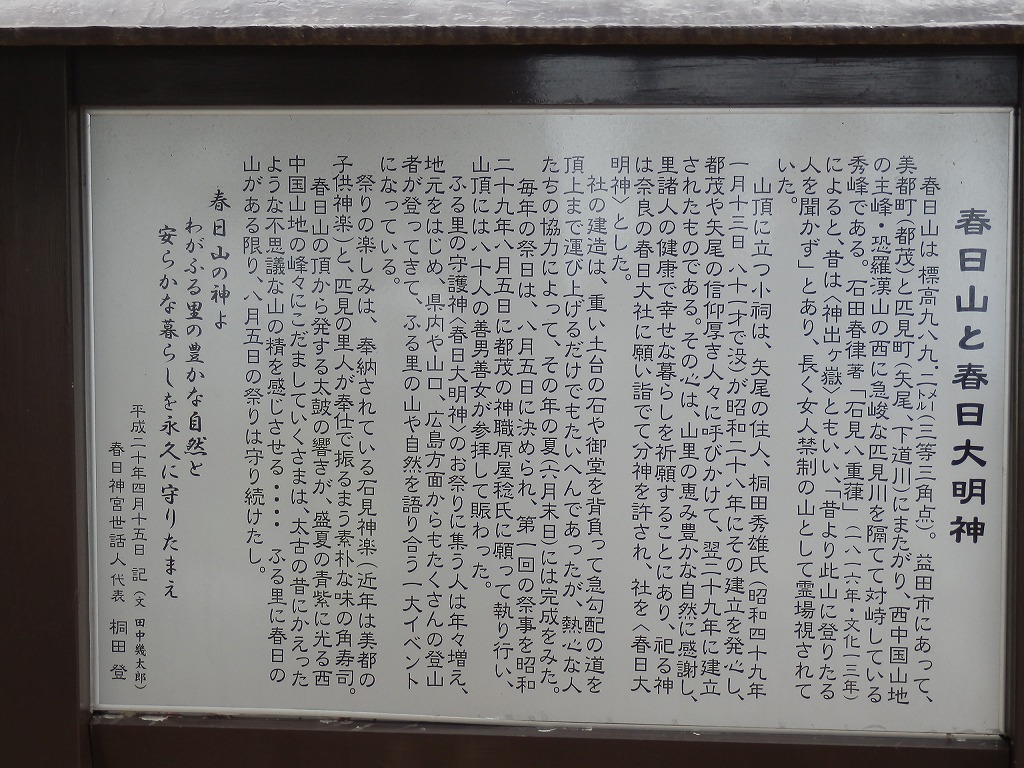 春日山と春日大明神
春日山は 標高九八九.二㍍(三等三角点)。益田市にあって、
美都町(都茂)と匹見町(矢尾、下道川)にまたがり、西中国山地
の主峰・恐羅漢山の西に急峻な匹見川を隔てて対峙している
秀峰である。石田春律著「石見八重葎」(一八一六年・文化一三年)
によると、昔は〈神出ヶ嶽〉ともいい、「昔より此山に登りたる
人を聞かず」とあり、長く女人禁制の山として霊場視されて
いた。
山頂に立つ小祠は、矢尾の住人、桐田秀雄氏(昭和四十九年
一月十三日 八十一才で没)が昭和二十八年にその建立を発心し、
都茂や矢尾の信仰厚き人々に呼びかけて、翌二十九年に建立
されたものである。その心は、山里の恵み豊かな自然に感謝し、
里諸人の健康で幸せな暮らしを祈願することにあり、祀る神
は奈良の春日大社に願い詣でて分神を許され、社を〈春日大
明神〉とした。
社の建造は、重い土台の石や御堂を背負って急勾配の道を
頂上まで運び上げるだけでもたいへんであったが、熱心な人
たちの協力によって、その年の夏(六月末日)には完成をみた。
毎年の祭日は、八月五日に決められ、第一回の祭事を昭和
二十九年八月五日に都茂の神職原屋稔氏に願って執り行い、
山頂には八十人の善男善女が参拝して賑わった。
ふる里の守護神〈春日大明神〉のお祭りに集う人は年々増え、
地元をはじめ、県内や山口、広島方面からもたくさんの登山
者が登ってきて、ふる里の山や自然を語り合う一大イベント
になっている。
祭りの楽しみは、奉納されている石見神楽(近年は美都の
子供神楽)と、匹見の里人が奉仕で振るまう素朴な味の角寿司。
春日山の頂から発する太鼓の響きが、盛夏の青紫に光る西
中国山地の峰々にこだましていくさまは、太古の昔にかえった
ような不思議な山の精を感じさせる・・・・ ふる里に春日の
山がある限り、八月五日の祭りは守り続けたし。
春日山の神よ
わがふる里の豊かな自然と
安らかな暮らしを永久に守りたまえ
平成二十年四月十五日 記(文 田中幾太郎)
春日神宮世話人代表 桐田 登